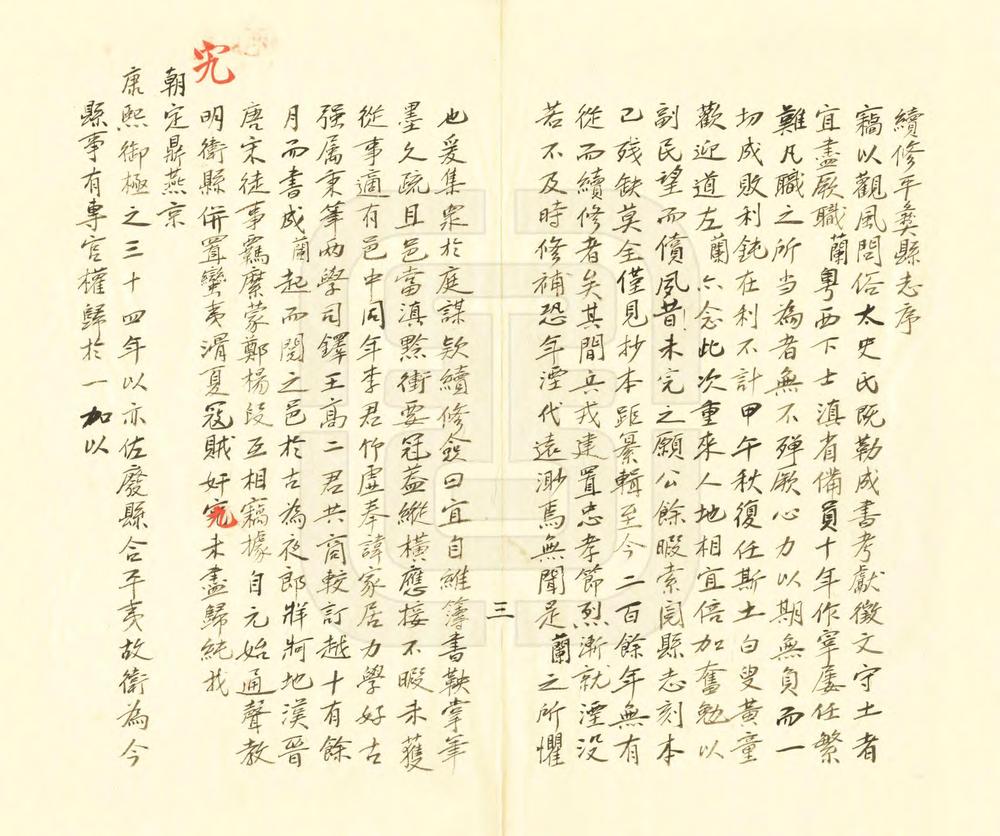 續修平彝縣志序
竊以觀風問俗太史氏既勒成書考獻徵文守土者
宜盡厥職蘭粵西下士滇省備員十年作宰屢任繁
難凡職之所当為者無不殫厥心力以期無負而一
切成敗利鈍在利不計甲午秋復任斯土白叟黃童
歡迎道左蘭亦念此次重來人地相宜倍加奮勉以
副民望而償夙昔未完之願公餘暇索閱縣志刻本
已殘缺莫全僅見抄本距纂輯至今二百餘年無有
從而續修者矣其間兵戎建置忠孝節烈漸就湮没
若不及時修補恐年湮代遠渺焉無聞是蘭之所懼
三
也爰集眾於庭謀欵續修僉曰宜自維簿書鞅掌筆
墨久疏且邑當滇黔衝要冠蓋縱橫應接不暇未獲
從事適有邑中同年李君竹虛奉諱家居力學好古
强属秉筆两學司鐸王高二君共商較訂越十有餘
月而書成蘭起而閱之邑於古為夜郎牂牁地漢晉
唐宋徒事羈縻蒙鄭楊段互相竊據自元始通聲教
明衛縣併置蠻夷滑夏冦賊奸宄未盡歸純我
宄
朝定鼎燕京
康熙御極之三十四年以亦佐廢縣合平夷故衛為今
縣事有專官權歸於一加以